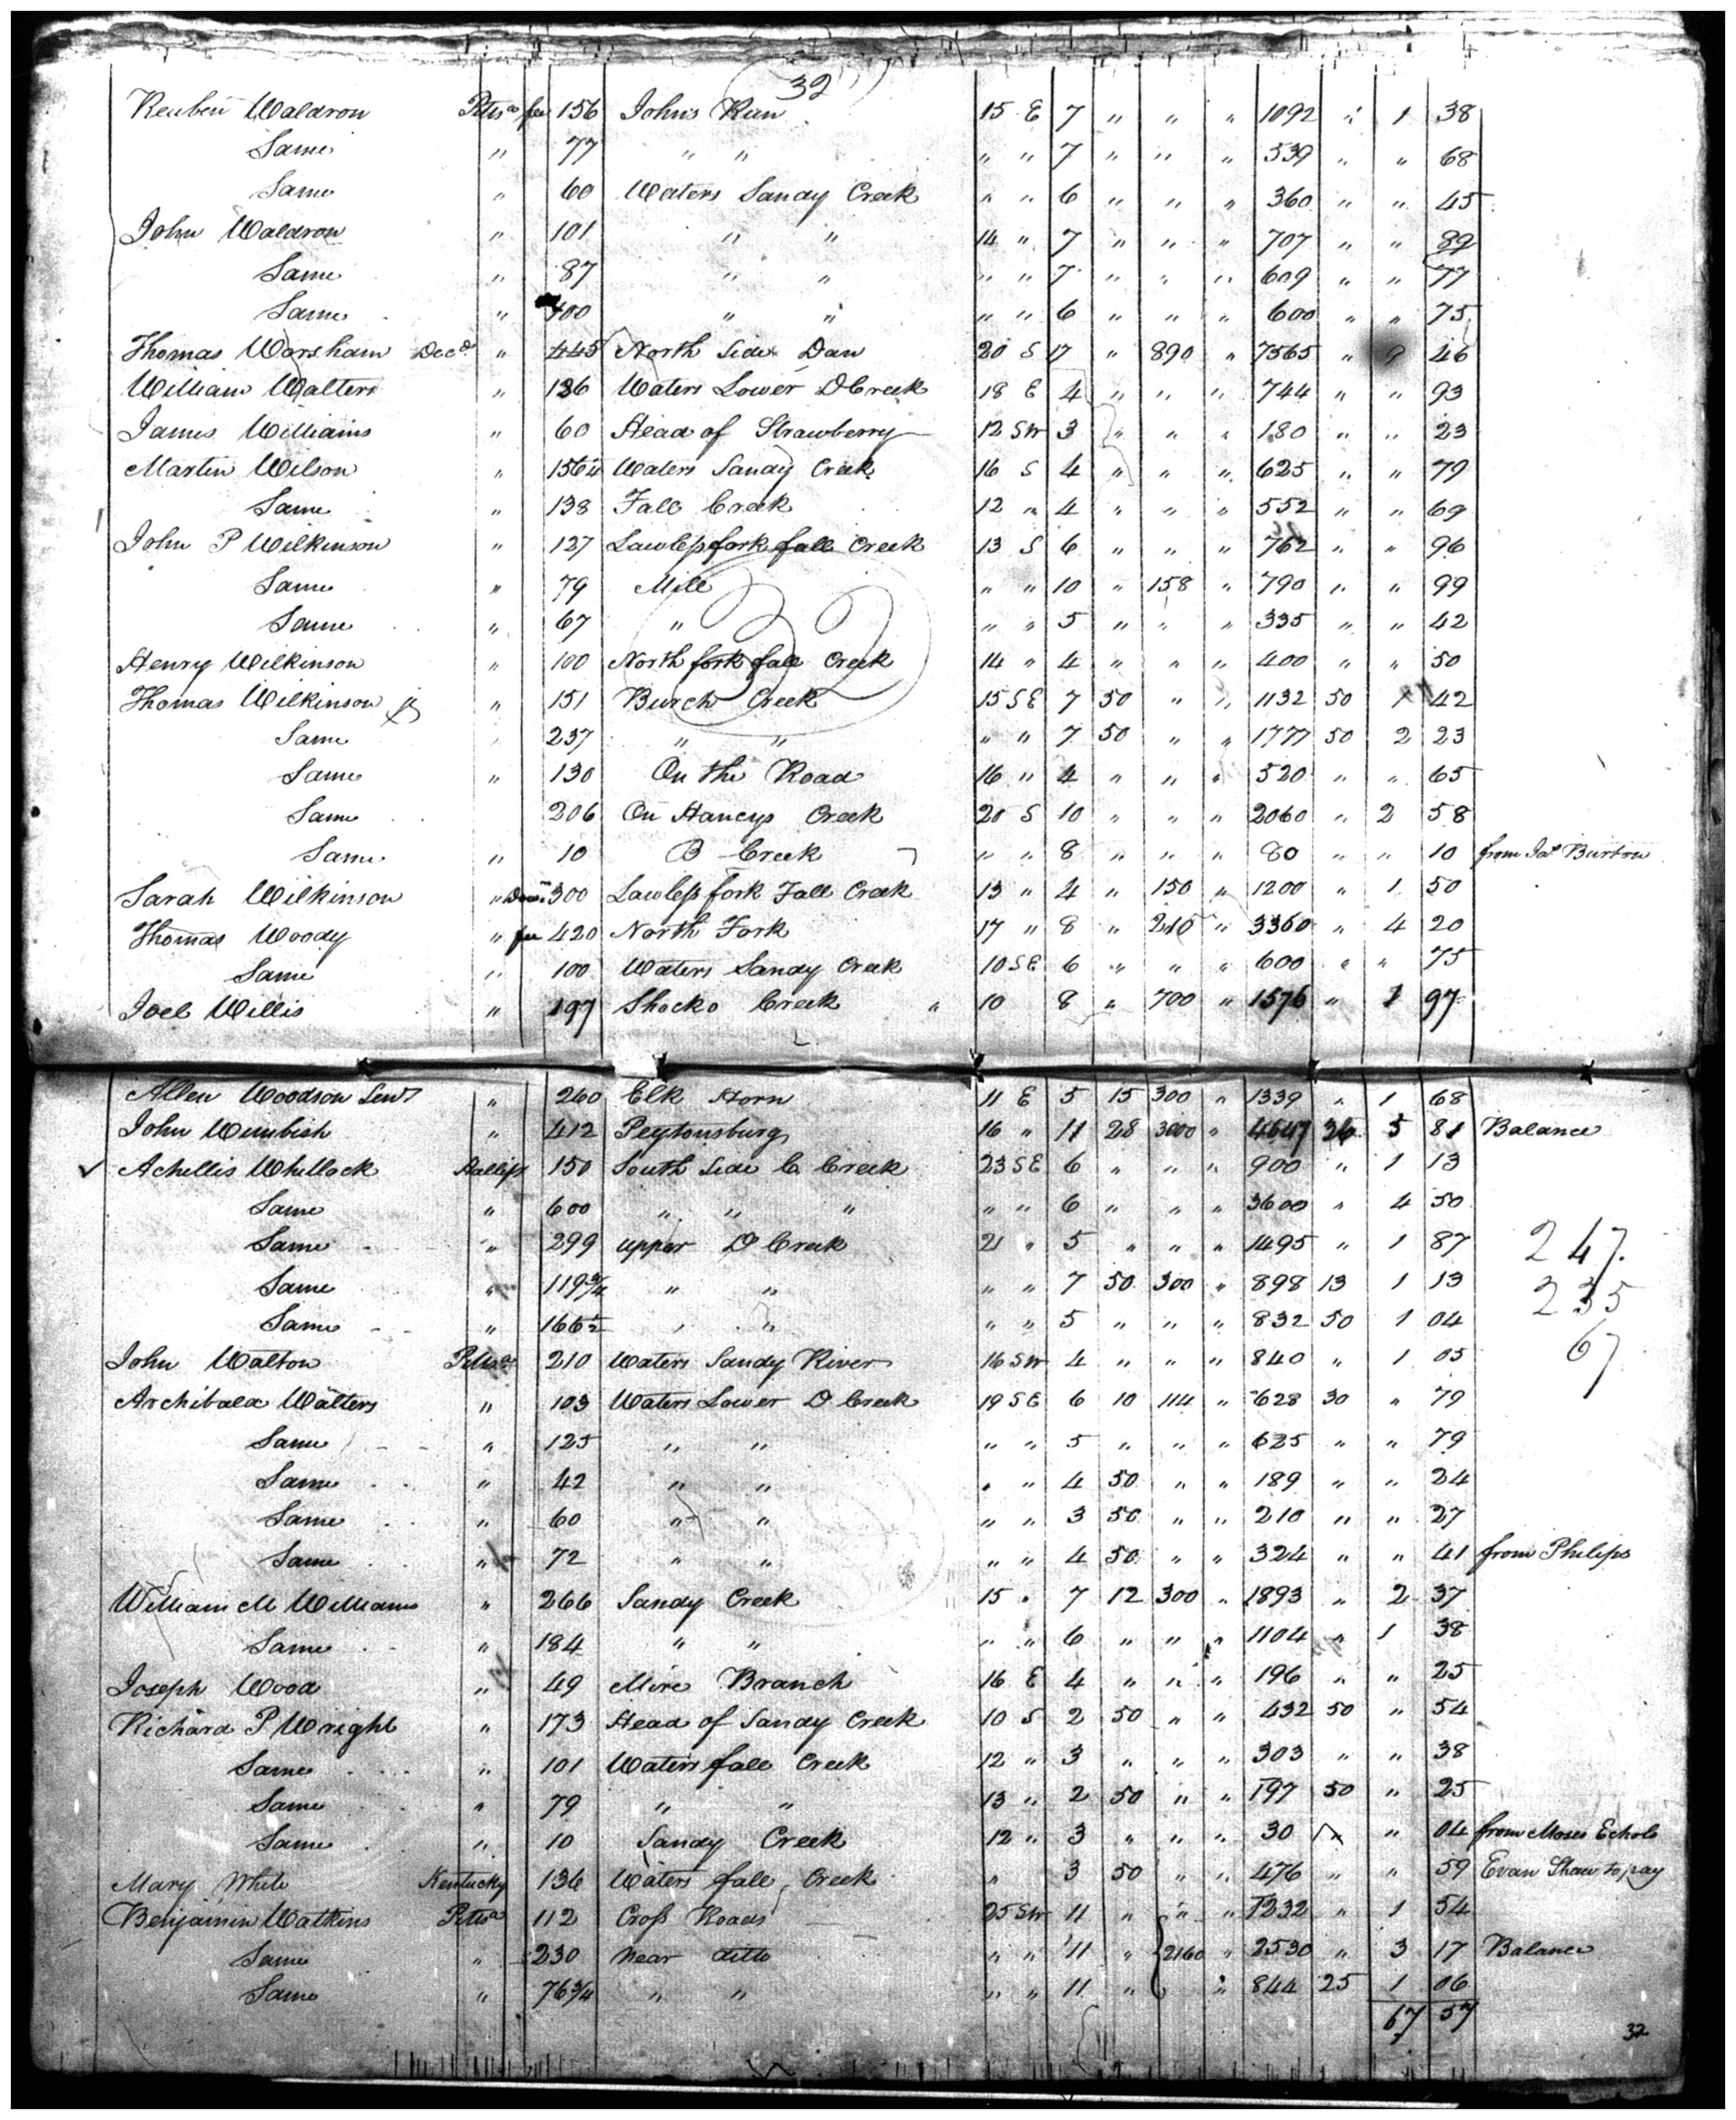 32
Reuben Waldron Pittsa fee 156 Johns Run 15 E 7 " " " 1092 " 1 38
Same " 77 " " " " 7 " " " 539 " " 68
Same " 60 Waters Sandy Creek " " 6 " " " 360 " " 45
John Waldron " 101 " " 14 " 7 " " " 707 " " 89
Same " 87 " " " " 7 " " " 609 " " 77
Same " 100 " " " " 6 " " " 600 " " 75
Thomas Worsham Decd " 445 North Side Dan 20 S 17 " 890 " 7565 " 9 46
William Walters " 186 Waters Lower D Creek 18 E 4 " " " 744 " " 93
James Williams " 60 Head of Strawberry 12 SW 3 " " " 180 " " 23
Martin Wilson " 156¼ Waters Sandy Creek 16 S 4 " " " 625 " " 79
Same " 138 Fall Creek 12 " 4 " " " 552 " " 69
John P Wilkinson " 127 Lawless fork fall Creek 13 S 6 " " " 762 " " 96
Same " 79 Mill " " 10 " 158 " 790 " " 99
Same " 67 " " " 5 " " " 335 " " 42
32
Henry Wilkinson " 100 North fork fall Creek 14 " 4 " " " 400 " " 50
Thomas Wilkinson jr " 151 Burch Creek 15 SE 7 50 " " 1132 50 1 42
Same " 237 " " " " 7 50 " " 1777 50 2 23
Same " 130 On the Road 16 " 4 " " " 520 " " 65
Same 206 On Hancys Creek 20 S 10 " " " 2060 " 2 58
Same " 10 B Creek " " 8 " " " 80 " " 10 from Jas Burton
Sarah Wilkinson " 300 Lawless fork Fall Creek 13 " 4 " 150 " 1200 " 1 50
Thomas Woody " fee 420 North Fork 17 " 8 " 210 " 3360 " 4 20
Same " 100 Waters Sandy Creek 10 SE 6 " " " 600 " " 75
Joel Willis " 197 Shocko Creek " 10 8 " 700 " 1576 " 1 97
Allen Woodson Senr " 260 Elk Horn 11 E 5 15 300 " 1339 " 1 68
John Wimbish " 412 Peytonsburg 16 " 11 28 3000 " 4647 36 5 81 Balance
✓ Achillis Whitlock Hallifx 150 South Side C Creek 23 SE 6 " " " 900 " 1 13
Same " 600 " " " " " 6 " " " 3600 " 4 50
Same " 299 upper D Creek 21 " 5 " " " 1495 " 1 87
247
Same " 119¾ " " " " 7 50 300 " 898 13 1 13
235
Same " 166½ " " " " 5 " " " 832 50 1 04
67
John Walton Pittsa 210 Waters Sandy River 16 SW 4 " " " 840 " 1 05
Archibald Walters " 103 Waters Lower D Creek 19 SE 6 10 114 " 628 30 " 79
Same " 125 " " " " 5 " " " 625 " " 79
Same " 42 " " " " 4 50 " " 189 " " 24
Same " 60 " " " " 3 50 " " 210 " " 27
Same " 72 " " " " 4 50 " " 324 " " 41 from Philips
William M Williams " 266 Sandy Creek 15 " 7 12 300 " 1893 " 2 37
Same " 184 " " " " 6 " " " 1104 " 1 38
Joseph Wood " 49 Mire Branch 16 E 4 " " " 196 " " 25
Richard P Wright " 173 Head of Sandy Creek 10 S 2 50 " " 432 50 " 54
Same " 101 Waters fall Creek 12 " 3 " " " 303 " " 38
Same " 79 " " 13 " 2 50 " " 197 50 " 25
Same " 10 Sandy Creek 12 " 3 " " " 30 " " 04 from Moses Echols
Mary White Kentucky 136 Waters fall Creek " 3 50 " " 476 " " 59 Evan Shaw to pay
Benjamin Watkins Pittsa 112 Cross Roads 25 SW 11 " " " 1232 " 1 54
Same " 230 Near ditto " " 11 " 2160 " 2530 " 3 17 Balance
Same " 76¾ " " " " 11 " " 844 25 1 06
67 57
32